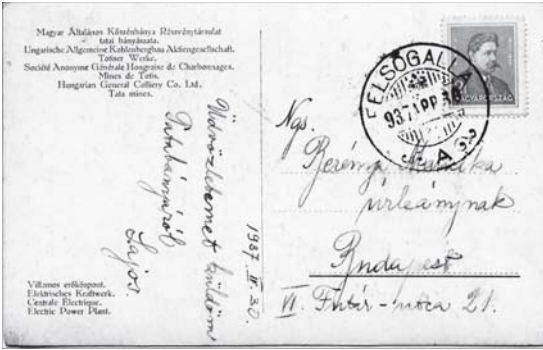 Magyar Általános Kőszénbánya Részvénytársulat
tatai bányászata.
Ungarische Allgemeine Kohlenbergbau Aktiengesellschaft.
Totiser Werke.
Société Anonyme Générale Hongroise de Charbonnages.
Mines de Totis.
Hungarian General Colliery Co. Ltd.
Tata mines.
1937 III. 30.
Üdvözletemet küldöm
Tatabányáról
Lajos.
Villamos erőközpont.
Elektrisches Kraftwerk.
Centrale Électrique.
Electric Power Plant.
FELSŐGALLA
MAGYARORSZÁG
Ngs.
úrleánynak
Budapest
VI. Futár-utca 21.